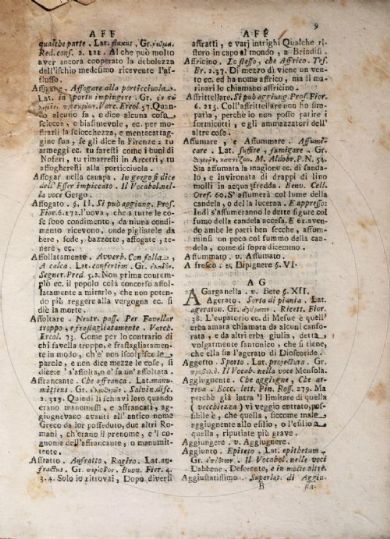 AFF
AFF
9
qualche parte. Lat. fluxus. Gr.
Red. cons. 2. 121. Al che può molto
aver ancora cooperato la debolezza
dell'ischio medesimo ricevente l'af-
flusso.
Affogare. Affogare alla porticciuola.
Lat. in portu impingere. Gr.
Varc. Ercol. 57. Quan-
do alcuno in, o dice alcuna cosa
sciocca, o biasimevole, e per mo-
strarli la sciocchezza, e mentecattag-
gine sua, se gli dice in Firenze: tu
armeggi ec. tu faresti come i buoi di
Noferi, tu rimarresti in Arcetri, tu
affogheresti alla porticciuola.
Affogar nella canapa. In gergo si dice
dell' Esser impiccato. Il Vocabol. nel-
la voce Gergo.
Affogato. §. II. Si può aggiung. Prof.
Fior. 6. 172. l'uova, che a tutte le co-
se sono condimento, da niuna condi-
mento ricevono, onde pigliatele da
bere, sode, bazzotte, affogate, te-
nere, ec.
Affollatamente. Avverb. Con folla.
A calca. Lat. confertim. Gr.
Segner. Pred. 5. 2. Non prima contem-
plò ec. il popolo colà concorso affol-
latamente a mirarlo, che non poten-
do più reggere alla vergogna ec. si
diè la morte.
Affoltare. Neutr. pass. Per Favellar
troppo, e frastagliatamente. Varch.
Ercol. 73. Come per lo contrario di
chi favella troppo, e frastagliatamen-
te in modo, ch'e' non iscolpisce le
parole, e non dice mezze le cose, si
dice: e' s'affolta, e' fa un' affoltata.
Affrancante. Che affranca. Lat. manu-
mittens. Gr. Salvin. disc.
2. 323. Quindi li schiavi loro quando
erano manomessi, e affrancati, ag-
giugnevano avanti all'antico nome
Greco da lor posseduto, due altri Ro-
mani, ch'erano il prenome, e'l co-
gnome dell'affrancante, o manumit-
tente.
Affratto. Anfratto, Lat. an-
fractus. Gr. Buon. Fier. 4.
3. 4. Solo io ritrovai, Dopo diversi
affratti, e varj intrighi Qualche ri-
storo in capo al mondo, a Brindisi.
Affricino. Lo stesso, che Affrico. Tes.
Br. 2. 37. Di mezzo di viene un ven-
to ec. ed ha nome affrico, ma li ma-
rinari lo chiamano affricino.
Affrittellare. Si può aggiung. Prof. Fior.
6. 213. Coll' affrittellare non ho sim-
patia, perchè io non posso patire i
fornicotti, e gli ammazzatori dell'
altre cose.
Affumare, e Affummare. Affumi-
care. Lat. suffire, fumigare. Gr.
M. Aldobr. P. N. 54.
Sia affumata la magione ec. di sanda-
lo, e invironata di drappi di lino
molli in acqua sfredda. Benv. Cell.
Oref. 60. S' affumerà col lume della
candela, o della lucerna. E appresso:
Indi s' affumeranno le dette figure col
fumo della candela accesa. E 62. aven-
do ambe le parti ben secche, affumi-
nisi un poco col fummo della can-
dela, come di sopra dicemmo.
Affummato. v. Affumato.
A fresco. v. Dipignere §. VI.
A G
A Garganella. v. Bere §. XII.
Agerato. Sorta di pianta. Lat.
ageraton. Gr. Ricett. Fior.
38. L'eupatorio ec. di Mesue è quell'
erba amara chiamata da alcuni canfo-
rata, e da altri erba giulia, detta
volgarmente santonico, che si tiene,
che ella sia l'agerato di Dioscoride.
Aggetto. Sporto. Lat. projectura. Gr.
Il Vocab. nella voce Mensola.
Aggiugnente. Che aggiugne, Che ar-
riva. Ecc. Tef. Pin. Ref. 219. Ma
perchè già intra 'l limitare di quella
(vecchiezza) vi veggio entrato, pos-
sibile è, che quella, siccome male
aggiugnente all'esilio, o l'esilio a
quella, riputiate più grave.
Aggiugnere. v. Aggiungere.
Aggiunto. Epiteto. Lat. epithetum.
Gr. Il Vocabol. nelle voci
L'abbene, Deforcuto, e in molte altre.
Aggiustatissimo. Superlat. di Aggiu-
B
sta-